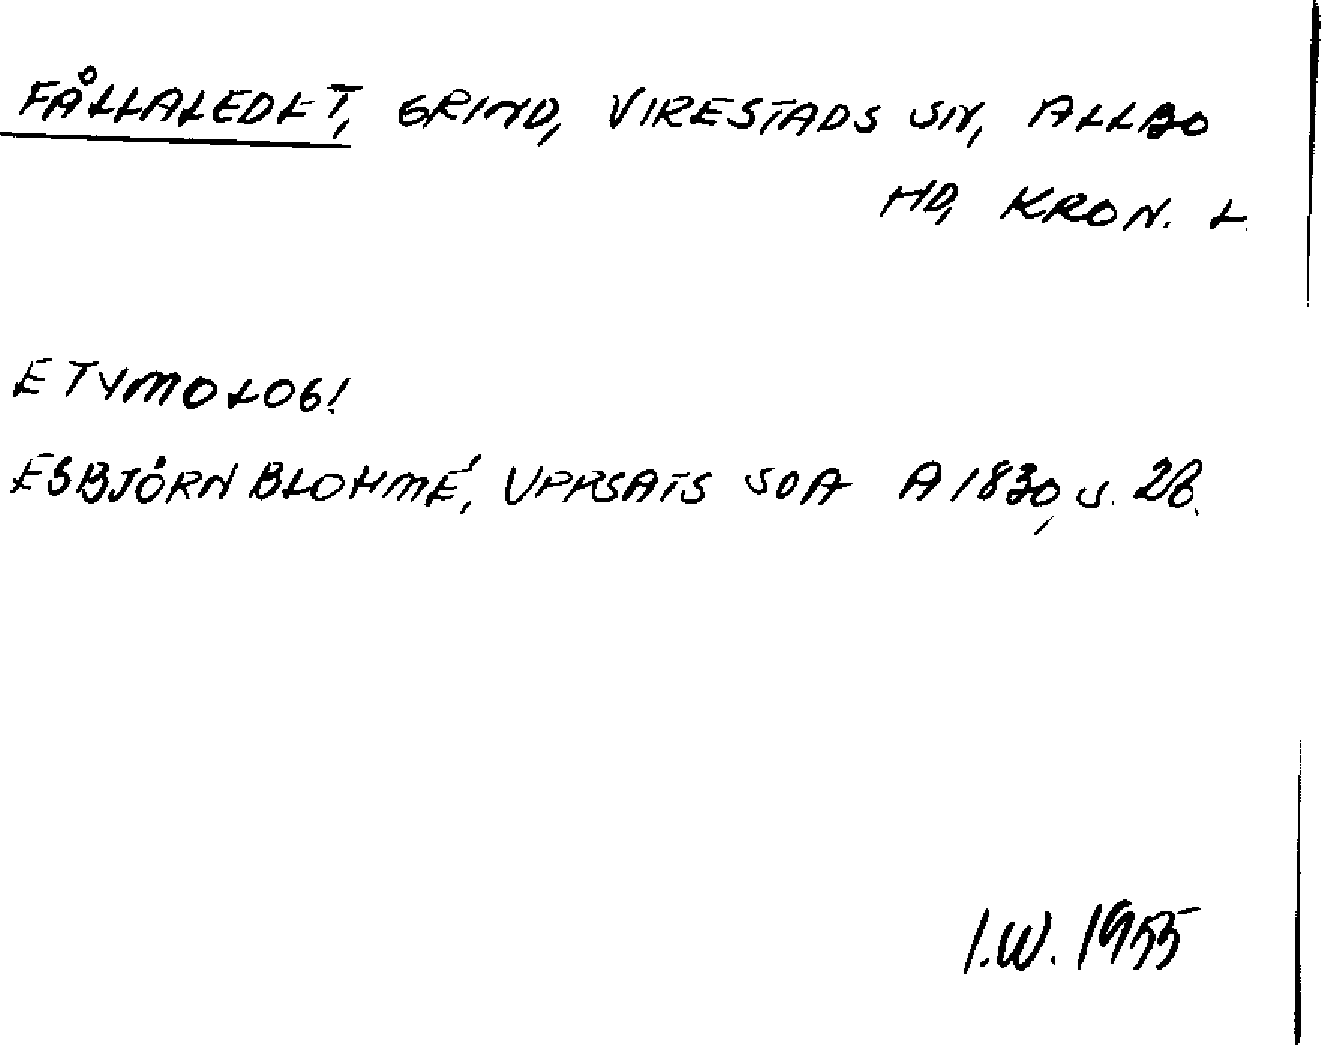 FÅLLALEDET, GRIND, VIRESTADS SN, ALLBO
HD, KRON. L.
ETYMOLOGI
ESBJÖRN BLOHMÉ, UPPSATS SOA A 1830, S. 28.
I.W. 1955